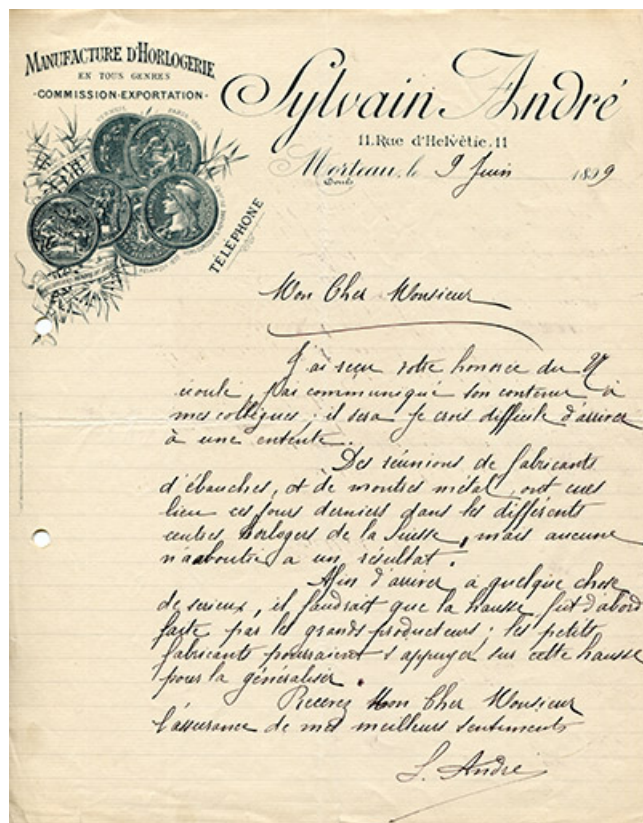 MANUFACTURE D'HORLOGERIE
EN TOUS GENRES
-COMMISSION-EXPORTATION-
Sylvain André
11, Rue d'Helvétie, 11
Morteau, le 9 Juin 1899
Doubs
PARIS
TÉLÉPHONE
Mon Cher Monsieur
J'ai reçu votre honorée du
écoulé, j'ai communiqué son contenu à
mes collègues; il sera je crois difficile d'arriver
à une entente.
Des réunions de fabricants
d'ébauches, et de montres métal, ont eues
lieu ces jours derniers dans les différents
centres horlogers de la Suisse, mais aucune
n'a aboutie a un résultat.
Afin d'arriver a quelque chose
de serieux, il faudrait que la hausse fut d'abord
faite par les grands producteurs; les petits
fabricants pourraient s'appuyer sur cette hausse
pour la généraliser.
Recevez Mon Cher Monsieur
l'assurance de mes meilleurs sentiments
S. André